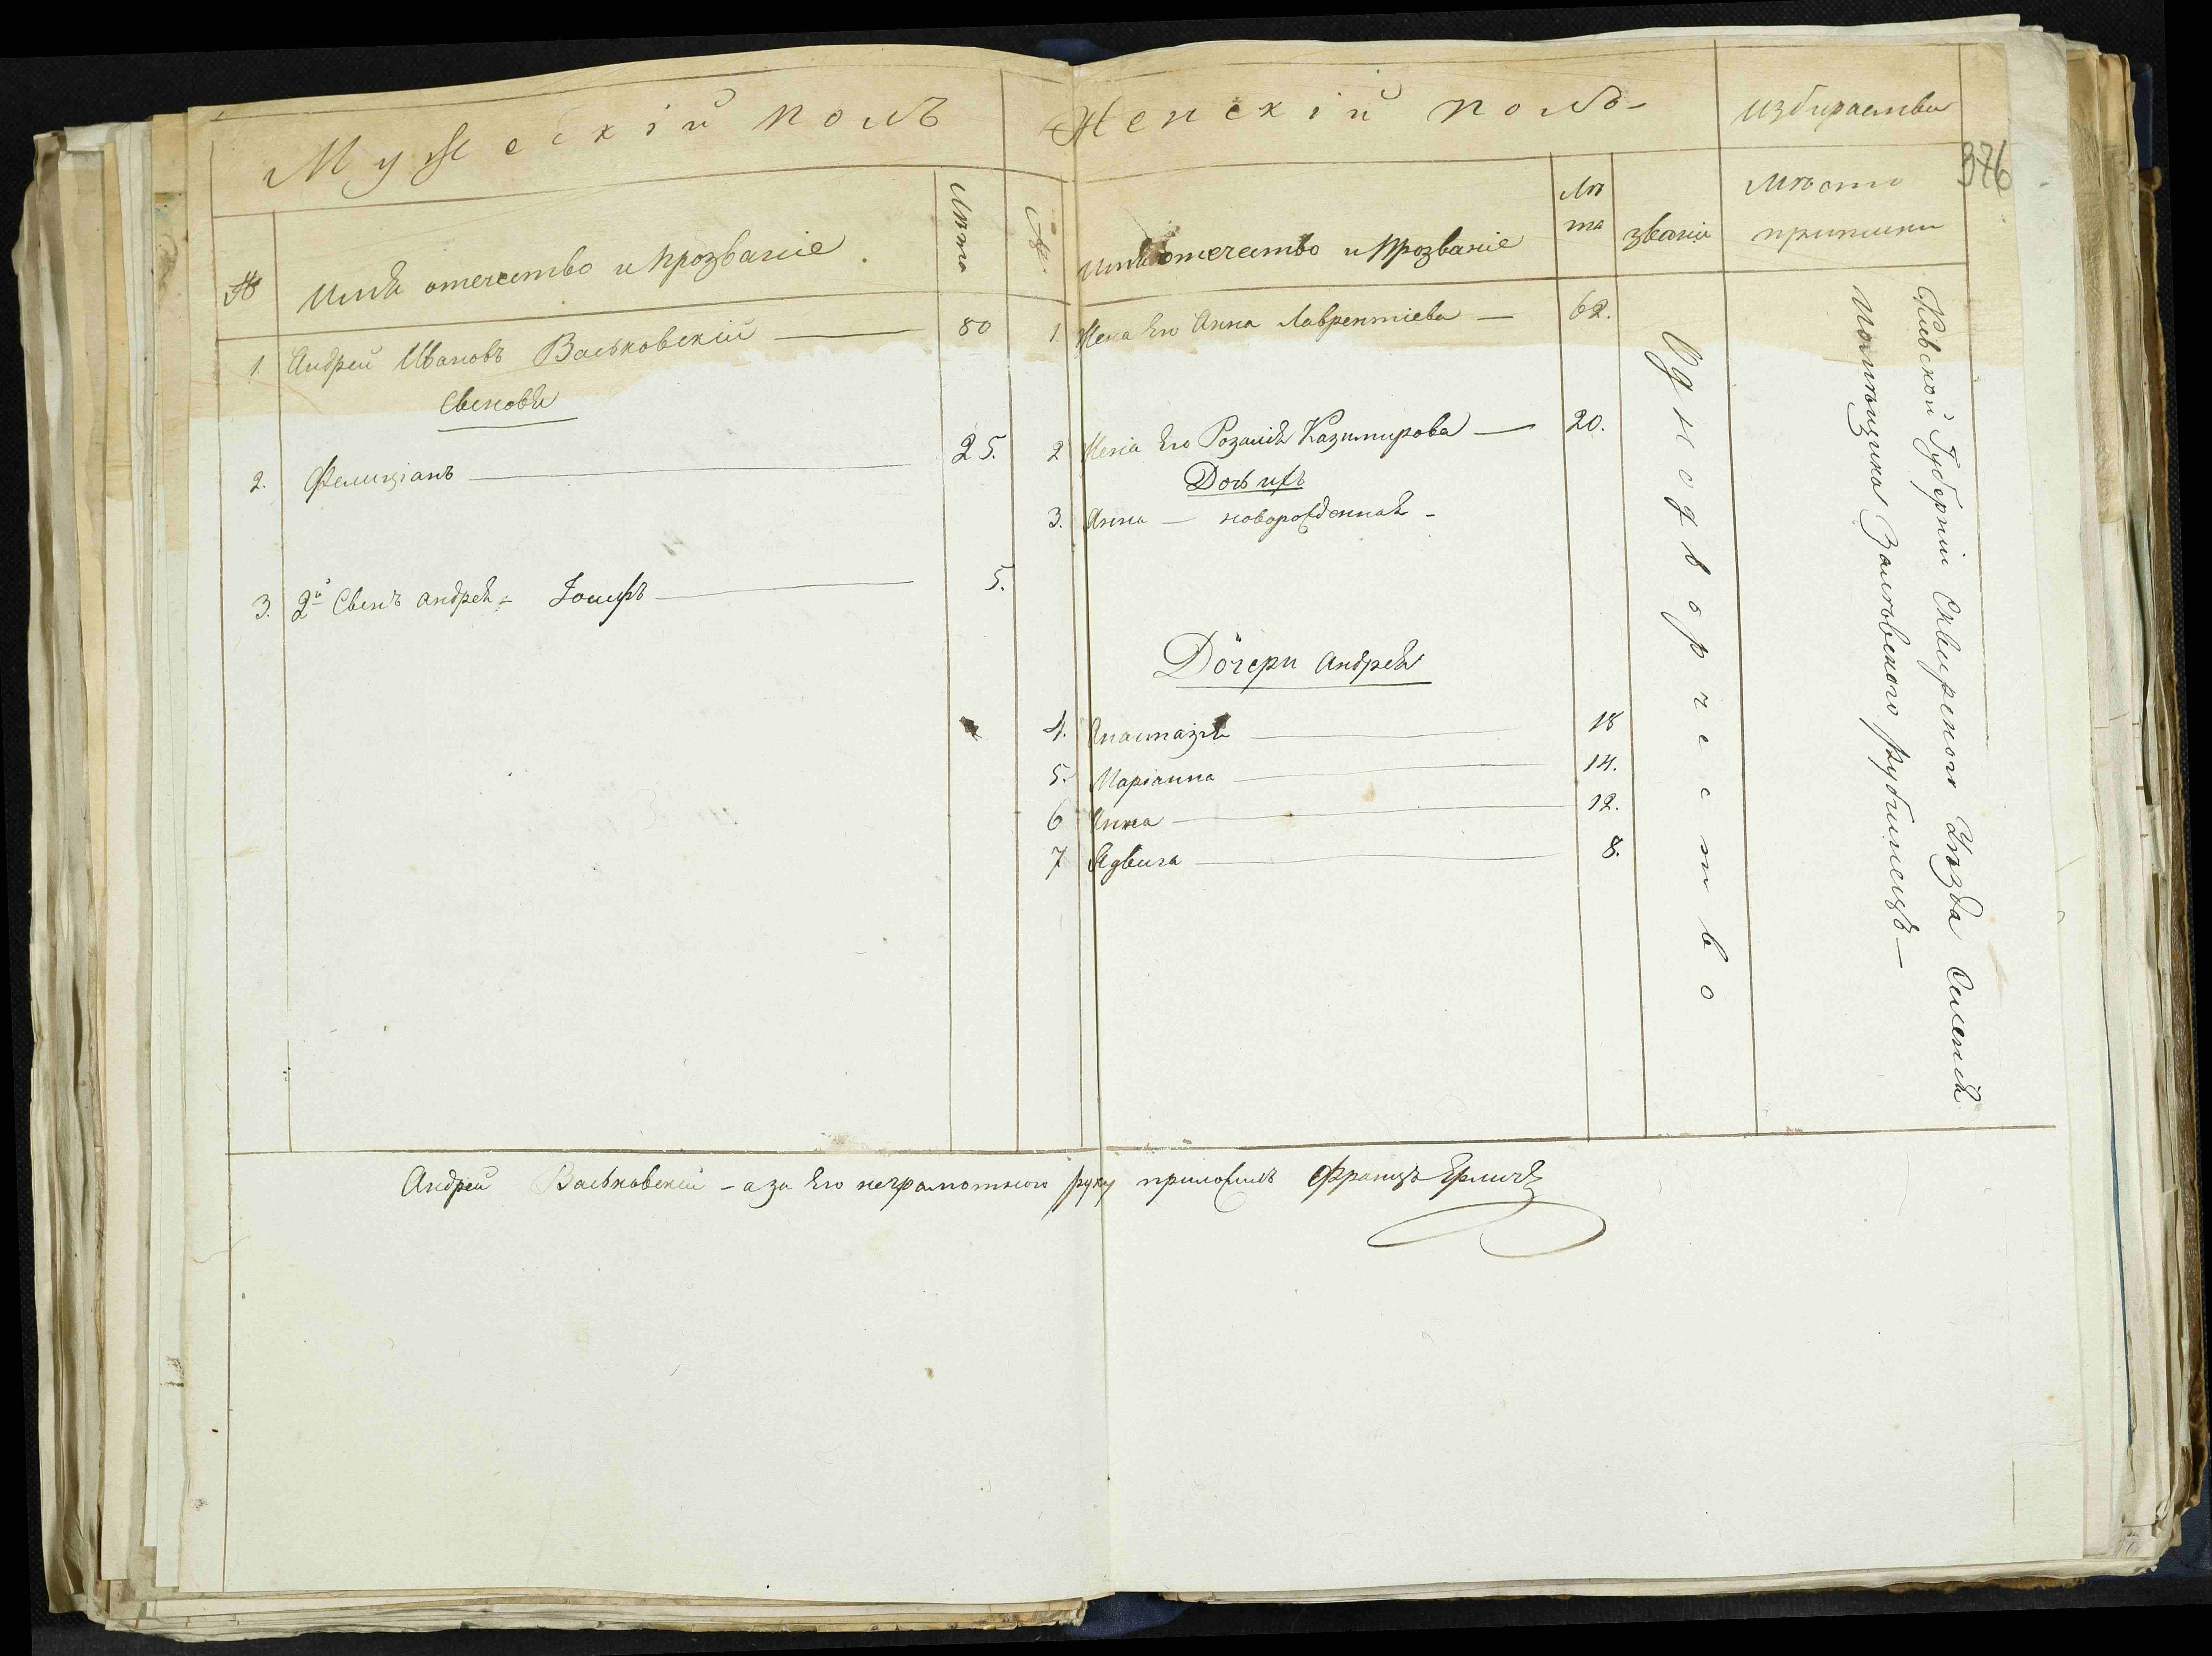 Мужескій полъ
№
Имя отечество и прозваніе
Лѣта
1. Андрей Ивановъ Васьковскій — 80
Сыновья
2. Фелиціанъ — 25.
3. 2й Сынъ Андрея = Іосифъ — 5.
Женскій полъ
№.
Имя отечество и прозваніе
Лѣ
та
званіе
избираютъ
Мѣсто
приписки
376
1. Жена Его Анна Лаврентіева — 62.
2 Жена Его Розалія Казимирова — 20.
Дочь ихъ
3. Анна — новорожденная -
Дочери Андрея
4. Анастазія — 18
5. Маріанна — 14.
6 Анна — 12.
7 Ядвига — 8.
Однодворчество
Кіевской Губерніи Сквирского Уѣзда Селенія
Помѣщика Залѣвского
Андрей Васьковскій - а за Его неграмотного руку приложилъ Францъ Ерличъ